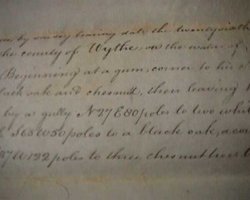 by survey bearing date the twenty
the county of Wythe on the waters of
Beginning at a gum, corner to his
black oak and chesnut, thence leaving
by a gully N 27 E 80 poles to two white
poles to a black oak,
W 132 poles to three chesnut trees